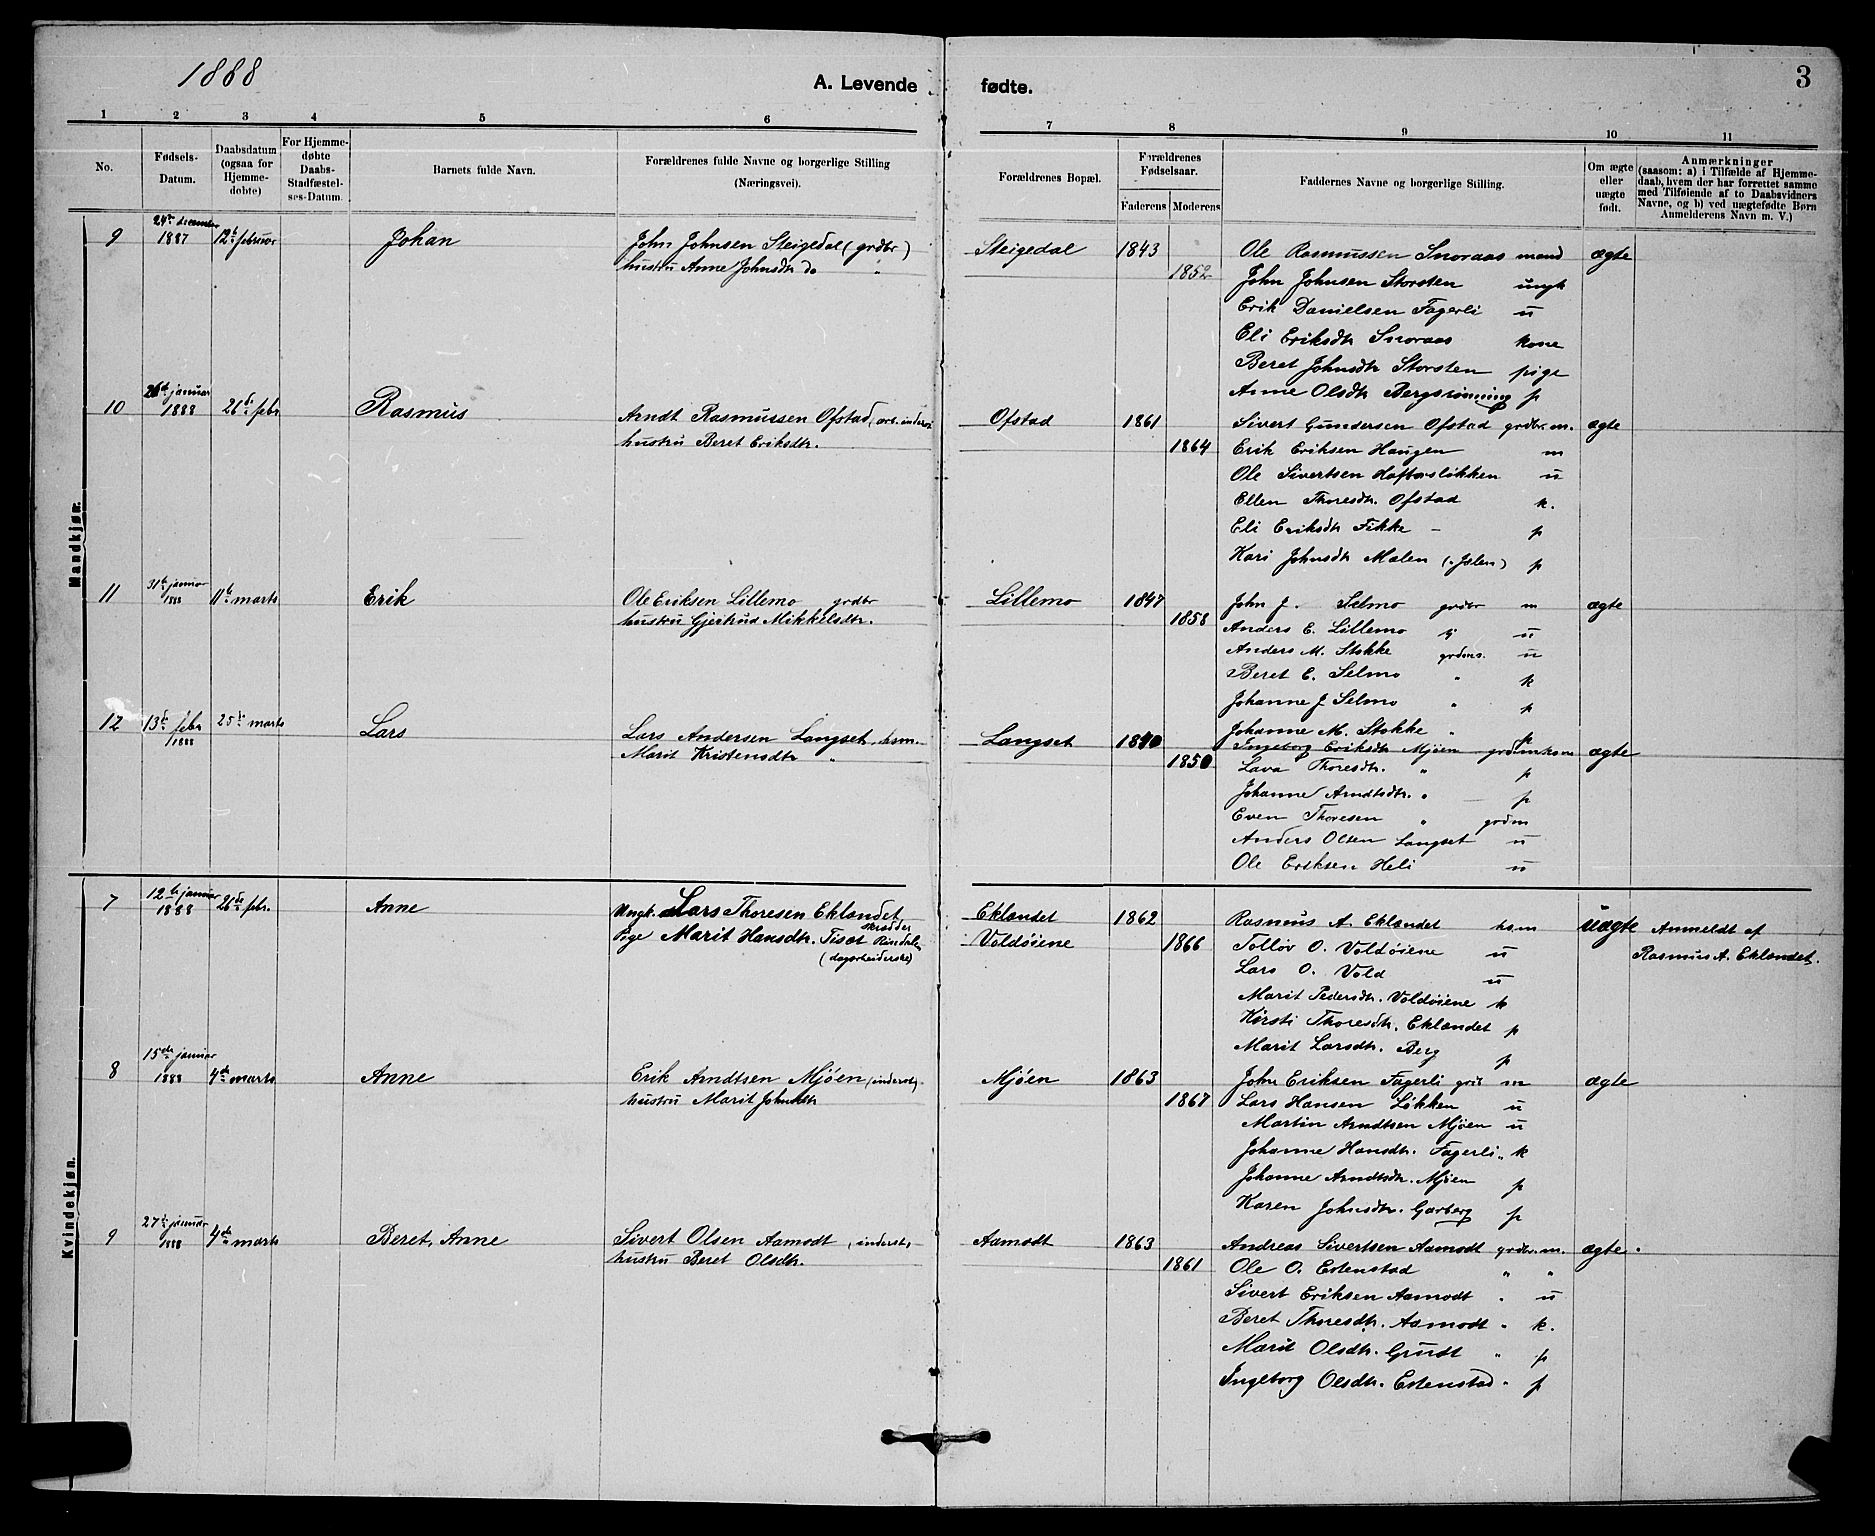 1888
A. Levende fødte.
3
1 2 3 4 5 6 7 8 9 10 11
No.
Fødsels-Datum.
Daabsdatum (ogsaa for Hjemmedøbte)
For Hjemmedøbte Daabs-Stadfæstelses-Datum.
Barnets fulde Navn.
Forældrenes fulde Navne og borgerlige Stilling (Næringsvei).
Forældrenes Bopæl.
Forældrenes Fødselsaar.
Faderens Moderens
Faddernes Navne og borgerlige Stilling.
Om ægte eller uægte født.
Anmærkninger (saasom: a) i Tilfælde af Hjemmedaab, hvem der har forrettet samme med Tilføiende af to Daabsvidners Navne, og b) ved uægtefødte Børn Anmelderens Navn m. V.)
Mandkjøn.
9 24de december 1887 12te februar Johan John Johnsen Steigedal (grdbr) Steigedal 1843 Ole Rasmussen Snoraas mand ægte
hustru Anne Johnsdtr do " 1852 John Johnsen Storsten ungk
Erik Danielsen Fagerli u
Eli Eriksdtr Snoraas kone
Beret Johnsdtr Storsten pige
Anne Olsdtr Bergsrønning p
10 26de januar 1888 26de febr Rasmus Arndt Rasmussen Ofstad (arb. inderst Ofstad 1861 Sivert Gundersen Ofstad grdbr. m. ægte
hustru Beret Eriksdtr. 1864 Erik Eriksen Haugen m
Ole Sivertsen Hoftensløkken u
Ellen Thoresdtr. Ofstad k.
Eli Eriksdtr Fikke – p
Kari Johnsdtr Malen (Jølen) p
11 31te januar 1888 11te marts Erik Ole Eriksen Lillemo grdbr Lillemo 1847 John J. Selmo grdbr m ægte
hustru Gjertrud Mikkelsdtr. 1858 Anders E. Lillemo g u
Anders M. Stokke grdms. u
Beret E. Selmo " k
Johanne J Selmo " p
Johanne M. Stokke " p
12 13de febr 1888 25de marts Lars Lars Andersen Langset, hsm. Langset 1840 Ingeborg Eriksdtr Mjøen grdmkone ægte
Marit Kristensdtr " 1850 Lava Thoresdtr. " p
Johanne Arndtsdtr. " – p
Even Thoresen " grdm
Anders Olsen Langset u
Ole Eriksen Heli u
Kvindekjøn.
7 12te januar 1888 26de febr. Anne Ungk. Lars Thoresen Eklandet, skrædder Eklandet 1862 Rasmus A. Eklandet hsm uægte Anmeldt af
Pige Marit Hansdtr. Tiset Risedalen (dagarbeiderske) Voldøiene 1866 Tolløv O. Voldøiene u Rasmus A. Eklandet.
Lars O. Vold u
Marit Pedersdtr. Voldøiene k
Kirsti Thoresdtr. Eklandet p
Marit Larsdtr. Berg p
8 15de januar 1888 4de marts Anne Erik Arndtsen Mjøen (inderst) Mjøen 1863 John Eriksen Fagerli grdb m ægte
hustru Marit Johnsdtr 1867 Lars Hansen Løkken u
Martin Arndtsen Mjøen u
Johanne Hansdtr. Fagerli " k
Johanne Arndtsdtr. Mjøen p
Karen Johnsdtr. Garberg p
9 27de januar 1888 4de marts Beret, Anne Sivert Olsen Aamodt (inderst) Aamodt 1863 Andreas Sivertsen Aamodt grdbr. m. ægte.
hustru Beret Olsdtr. 1861 Ole O. Estenstad " "
Sivert Eriksen Aamodt " u
Beret Thoresdtr. Aamodt " k.
Marit Olsdtr. Grudt " p
Ingeborg Olsdtr. Estenstad " p